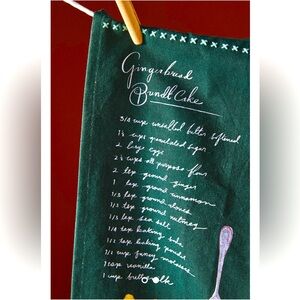 Gingerbread
Bundt Cake
3/4 cup unsalted butter, softened
1 1/2 cups granulated sugar
2 large eggs
2 1/2 cups all purpose flour
2 tsp ground ginger
1 tsp ground cinnamon
1/2 tsp ground cloves
1/2 tsp ground nutmeg
1/2 tsp sea salt
1/4 tsp baking soda
1/2 tsp baking powder
1/2 cup fancy molasses
1 tsp vanilla
1 cup